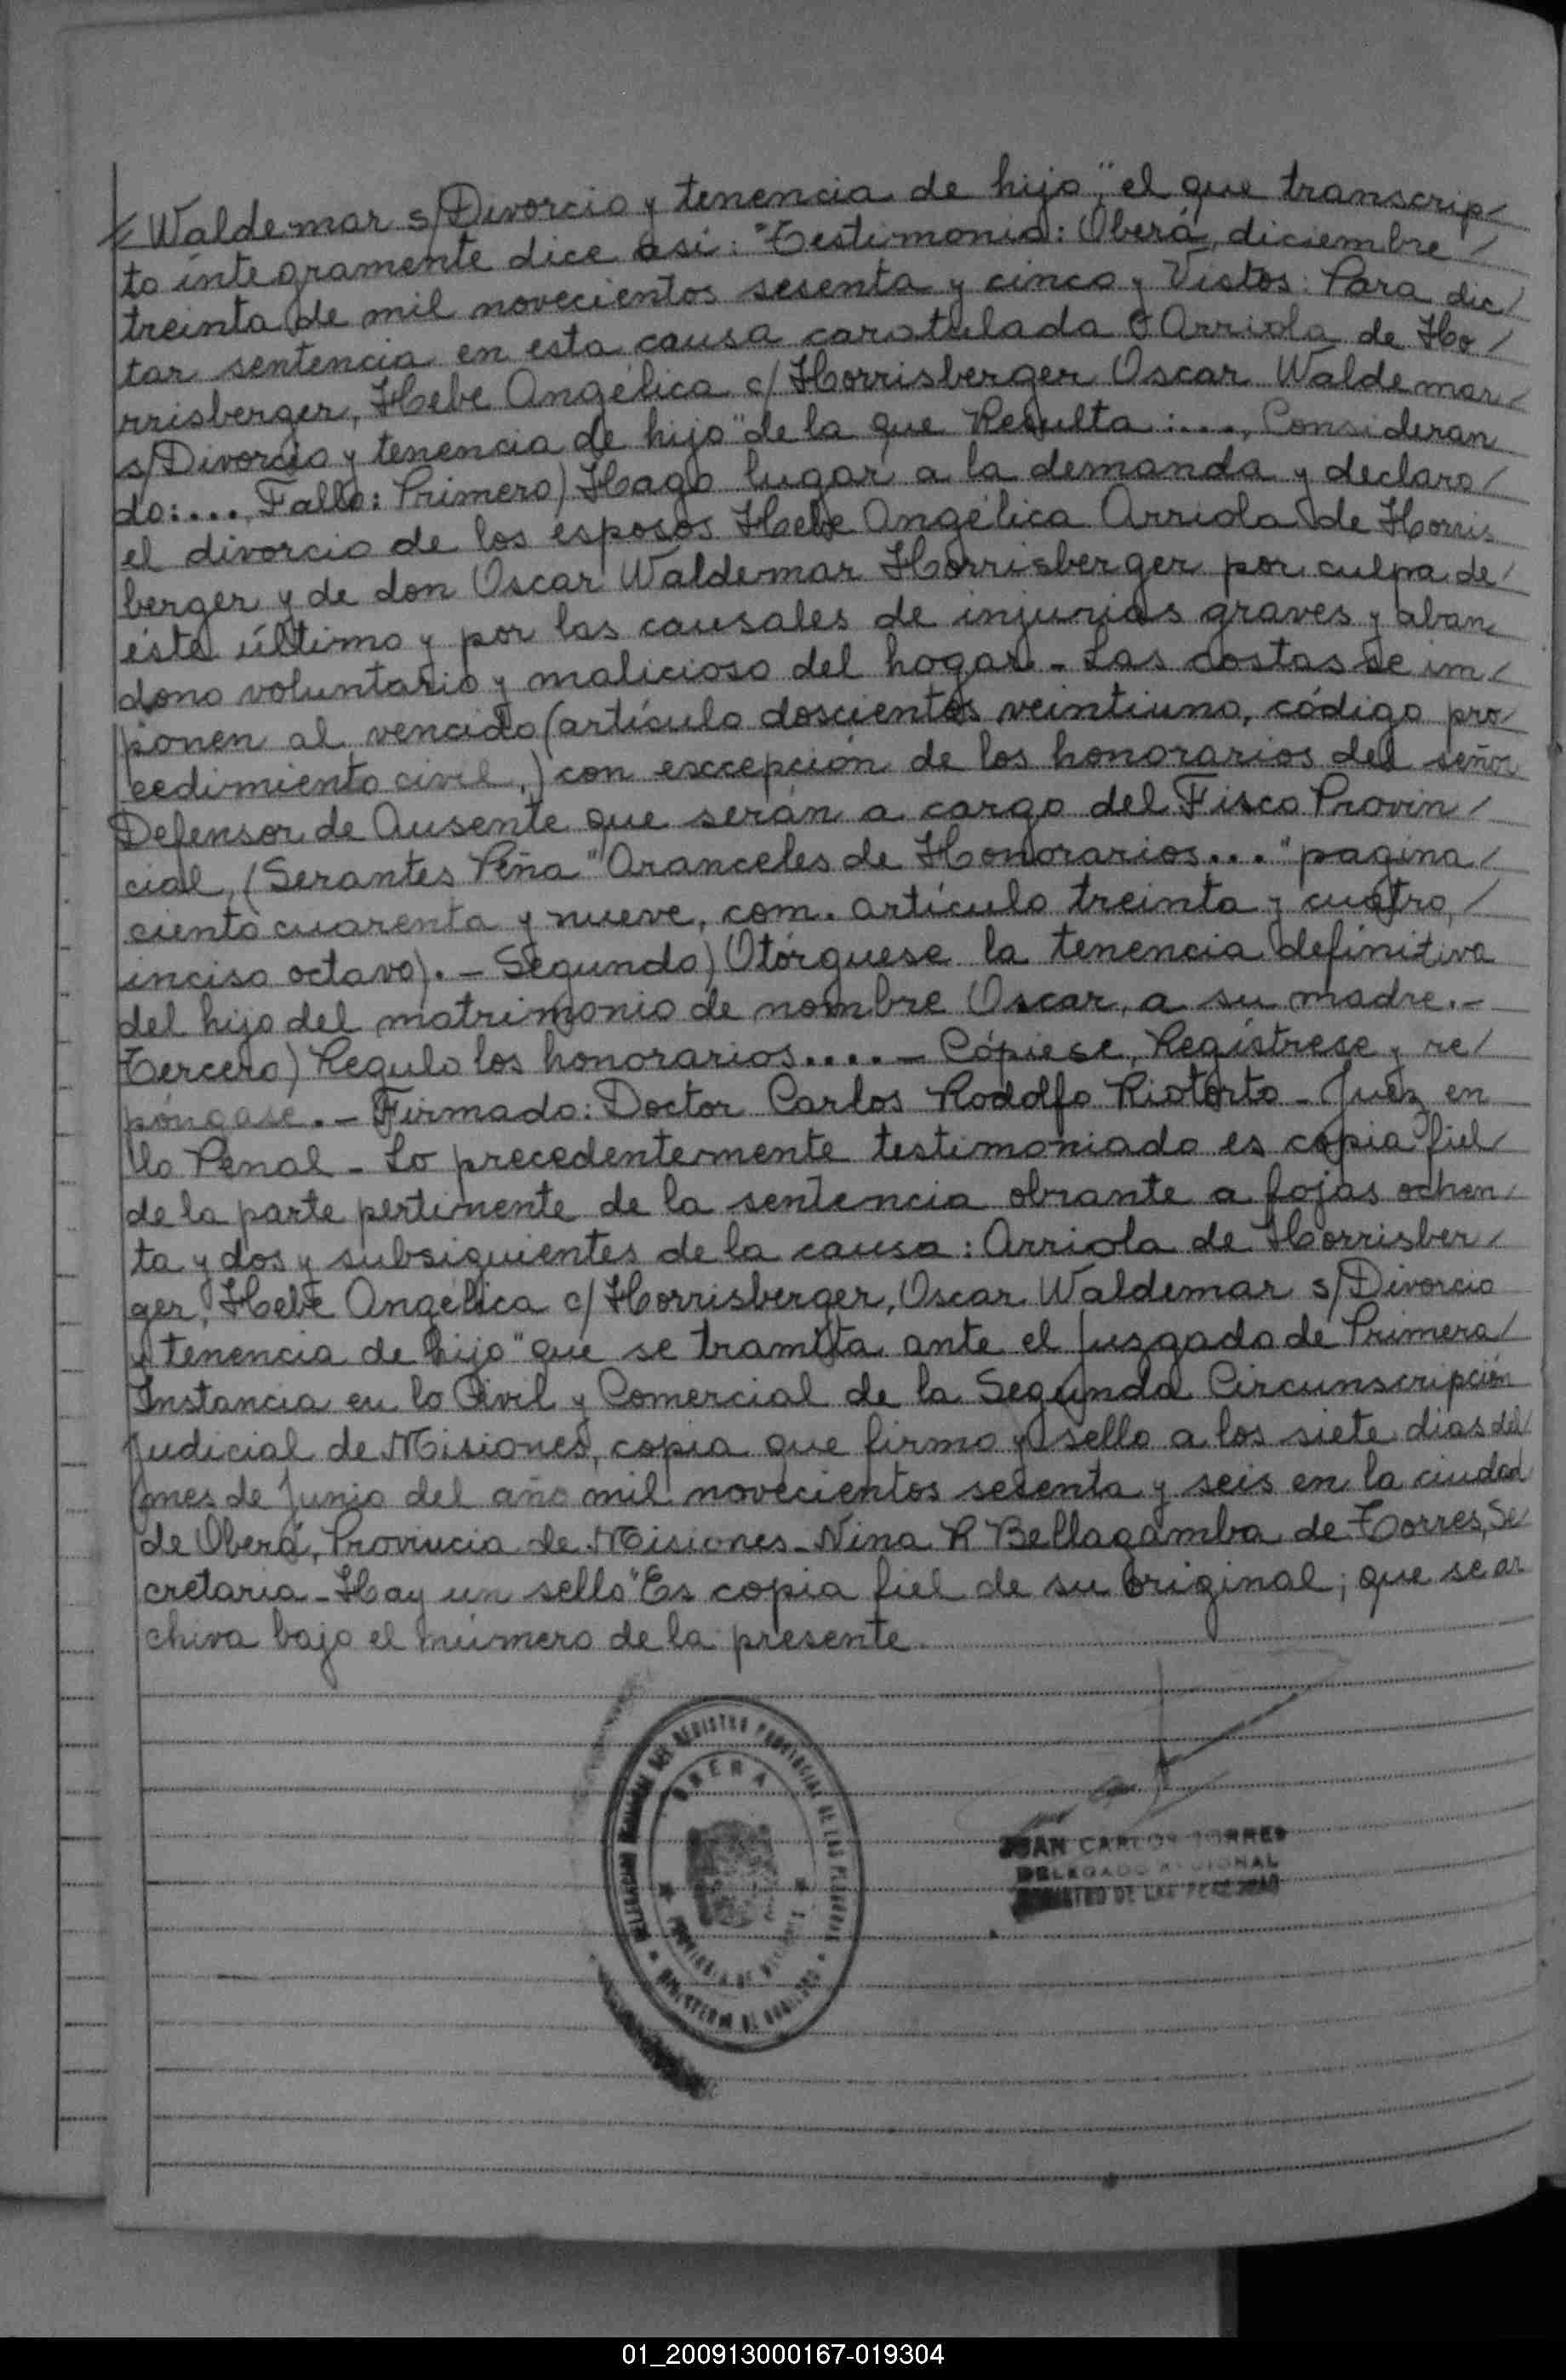 Waldemar s/Divorcio y tenencia de hijo", el que transcrip/
to íntegramente dice así: "Testimonio: Oberá, diciembre /
treinta de mil novecientos sesenta y cinco y Vistos: Para dic/
tar sentencia en esta causa caratulada Arriola de Ho/
rrisberger, Hebe Angélica c/ Horrisberger Oscar Waldemar/
s/Divorcio y tenencia de hijo" de la que Resulta:...., Consideran
do:.... Fallo: Primero) Hago lugar a la demanda y declaro/
el divorcio de los esposos Hebe Angélica Arriola de Horris
berger y de don Oscar Waldemar Horrisberger por culpa de/
éste último y por las causales de injurias graves y aban
dono voluntario y malicioso del hogar - Las costas se im/
ponen al vencido (artículo doscientos veintiuno, código pro/
cedimiento civil,) con excepción de los honorarios del señor
Defensor de Ausente que serán a cargo del Fisco Provin/
cial, (Serantes Peña "Aranceles de Honorarios..." pagina/
ciento cuarenta y nueve, com. artículo treinta y cuatro,/
inciso octavo). - Segundo) Otórguese la tenencia definitiva
del hijo del matrimonio de nombre Oscar, a su madre.-
Tercero) Regulo los honorarios.... - Cópiese, Regístrese y re/
póngase. - Firmado: Doctor Carlos Rodolfo Riotorto - Juez en
lo Penal - Lo precedentemente testimoniado es copia fiel/
de la parte pertinente de la sentencia obrante a fojas ochen/
ta y dos y subsiguientes de la causa: Arriola de Horrisber/
ger, Hebe Angélica c/ Horrisberger, Oscar Waldemar s/Divorcio
y tenencia de hijo" que se tramita ante el Juzgado de Primera/
Instancia en lo Civil y Comercial de la Segunda Circunscripción
Judicial de Misiones, copia que firmo y sello a los siete dias del/
mes de Junio del año mil novecientos sesenta y seis en la ciudad
de Oberá, Provincia de Misiones - Nina R Bellagamba de Torres, Se/
cretaria - Hay un sello" Es copia fiel de su original; que se ar
chiva bajo el número de la presente.
REGISTRO PROVINCIAL DE LAS PERSONAS
OBERA
PROVINCIA DE MISIONES
MINISTERIO DE GOBIERNO
JUAN CARLOS TORRES
DELEGADO REGIONAL
REGISTRO DE LAS PERSONAS
01_200913000167-019304